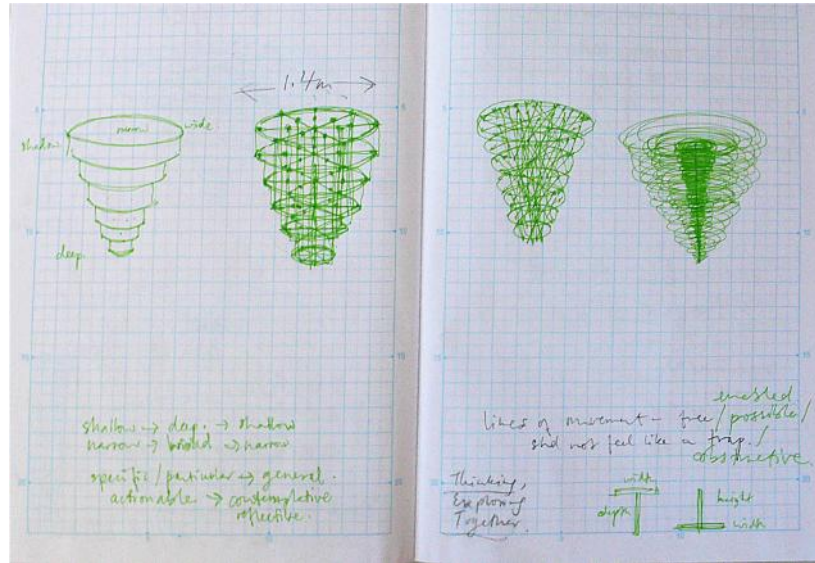 1.4m
narrow
wide
shallow
deep.
shallow → deep. → shallow
narrow → broad → narrow
specific/particular → general.
actionable → contemplative
reflective.
enabled
lines of movement – free / possible /
shd not feel like a trap. /
obstructive.
Thinking,
Exploring
Together.
width
depth
height
width
5
5
10
10
15
15
20
20
5
10